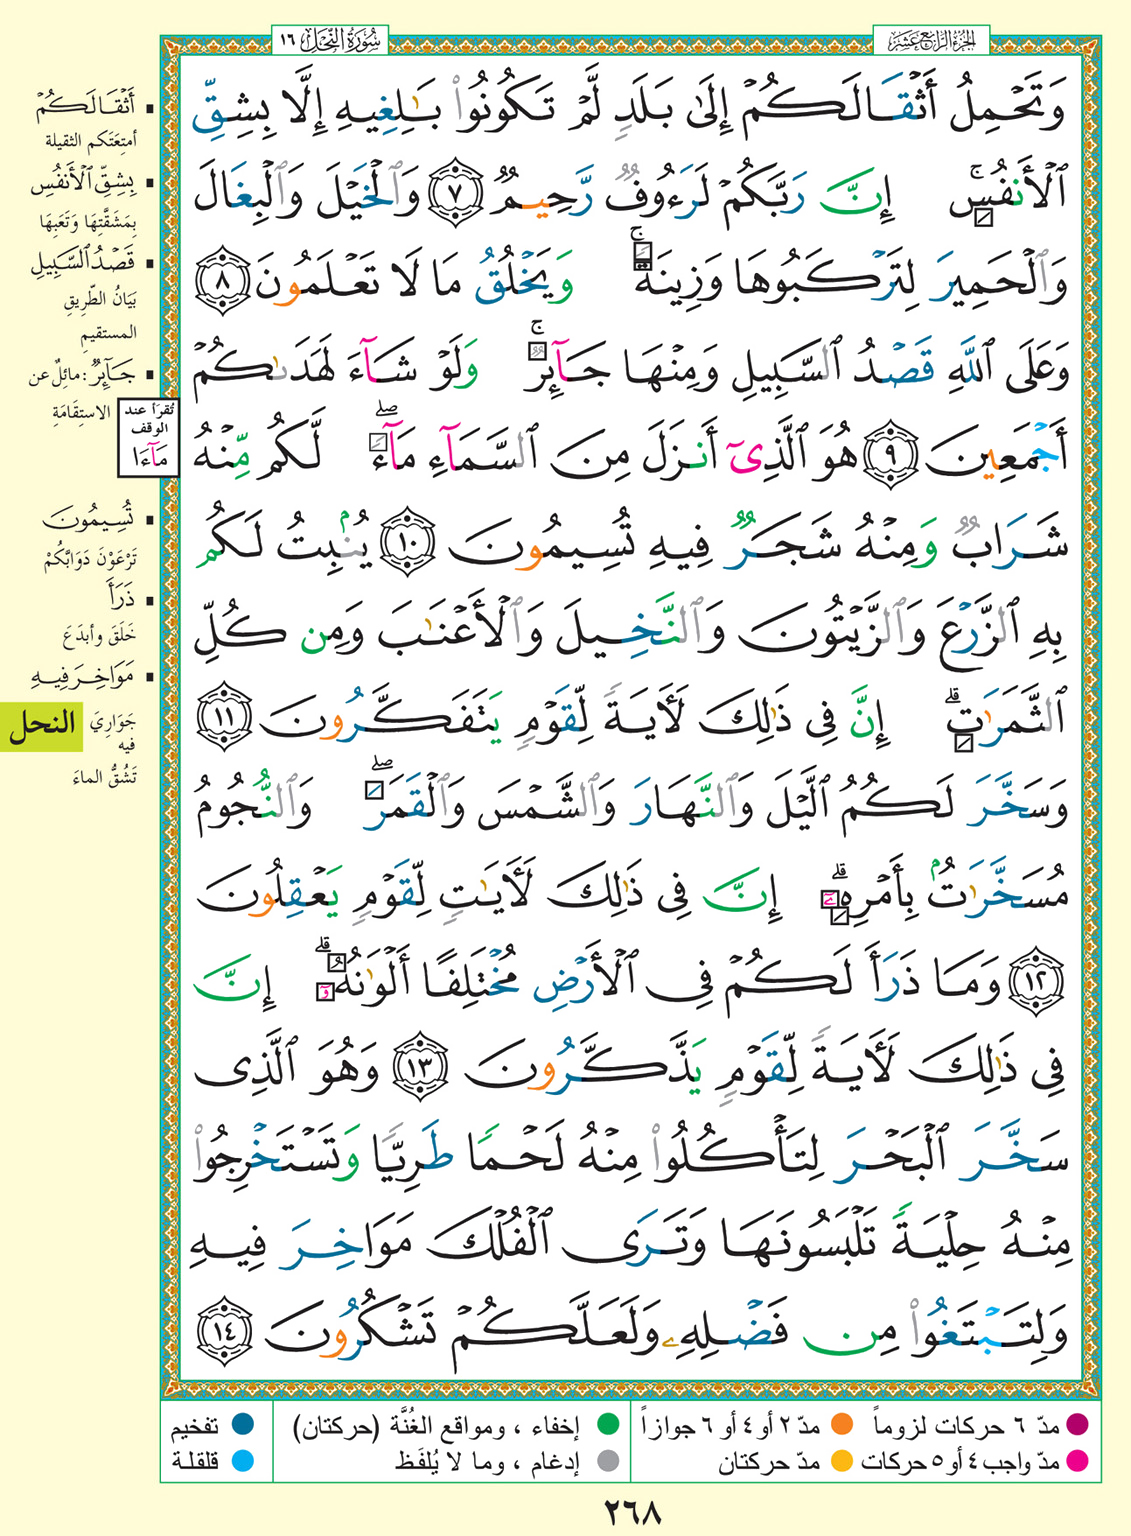 سُورَةُ النَّحْلِ ١٦
الجُزءُ الرَّابِعَ عَشَرَ
وَتَحْمِلُ أَثْقَالَكُمْ إِلَىٰ بَلَدٍ لَّمْ تَكُونُوا۟ بَـٰلِغِيهِ إِلَّا بِشِقِّ
ٱلْأَنفُسِ ۚ إِنَّ رَبَّكُمْ لَرَءُوفٌ رَّحِيمٌ ٧ وَٱلْخَيْلَ وَٱلْبِغَالَ
وَٱلْحَمِيرَ لِتَرْكَبُوهَا وَزِينَةً ۚ وَيَخْلُقُ مَا لَا تَعْلَمُونَ ٨
وَعَلَى ٱللَّهِ قَصْدُ ٱلسَّبِيلِ وَمِنْهَا جَآئِرٌ ۚ وَلَوْ شَآءَ لَهَدَىٰكُمْ
أَجْمَعِينَ ٩ هُوَ ٱلَّذِىٓ أَنزَلَ مِنَ ٱلسَّمَآءِ مَآءً ۖ لَّكُم مِّنْهُ
شَرَابٌ وَمِنْهُ شَجَرٌ فِيهِ تُسِيمُونَ ١٠ يُنۢبِتُ لَكُم
بِهِ ٱلزَّرْعَ وَٱلزَّيْتُونَ وَٱلنَّخِيلَ وَٱلْأَعْنَـٰبَ وَمِن كُلِّ
ٱلثَّمَرَٰتِ ۗ إِنَّ فِى ذَٰلِكَ لَـَٔايَةً لِّقَوْمٍ يَتَفَكَّرُونَ ١١
وَسَخَّرَ لَكُمُ ٱلَّيْلَ وَٱلنَّهَارَ وَٱلشَّمْسَ وَٱلْقَمَرَ ۖ وَٱلنُّجُومُ
مُسَخَّرَٰتٌۢ بِأَمْرِهِۦٓ ۗ إِنَّ فِى ذَٰلِكَ لَـَٔايَـٰتٍ لِّقَوْمٍ يَعْقِلُونَ
١٢ وَمَا ذَرَأَ لَكُمْ فِى ٱلْأَرْضِ مُخْتَلِفًا أَلْوَٰنُهُۥٓ ۗ إِنَّ
فِى ذَٰلِكَ لَـَٔايَةً لِّقَوْمٍ يَذَّكَّرُونَ ١٣ وَهُوَ ٱلَّذِى
سَخَّرَ ٱلْبَحْرَ لِتَأْكُلُوا۟ مِنْهُ لَحْمًا طَرِيًّا وَتَسْتَخْرِجُوا۟
مِنْهُ حِلْيَةً تَلْبَسُونَهَا وَتَرَى ٱلْفُلْكَ مَوَاخِرَ فِيهِ
وَلِتَبْتَغُوا۟ مِن فَضْلِهِۦ وَلَعَلَّكُمْ تَشْكُرُونَ ١٤
▪ أَثْقَالَكُمْ
أمتِعَتَكم الثقيلة
▪ بِشِقِّ ٱلْأَنفُسِ
بِمَشَقَّتِها وَتَعَبِها
▪ قَصْدُ ٱلسَّبِيلِ
بَيَانُ الطَّرِيقِ
المستقيمِ
▪ جَآئِرٌ : مائِلٌ عن
الاستِقَامَةِ
تُقرَأ عند
الوقف
مَآءَا
▪ تُسِيمُونَ
تَرْعَوْنَ دَوَابَّكُمْ
▪ ذَرَأَ
خَلَقَ وأبدَعَ
▪ مَوَاخِرَ فِيهِ
جَوَارِيَ
فيه
تَشُقُّ الماءَ
النحل
مدّ ٦ حركات لزوماً
مدّ ٢ أو ٤ أو ٦ جوازاً
مدّ واجب ٤ أو ٥ حركات
مدّ حركتان
إخفاء ، ومواقع الغُنَّة (حركتان)
إدغام ، وما لا يُلفَظ
تفخيم
قلقلة
٢٦٨